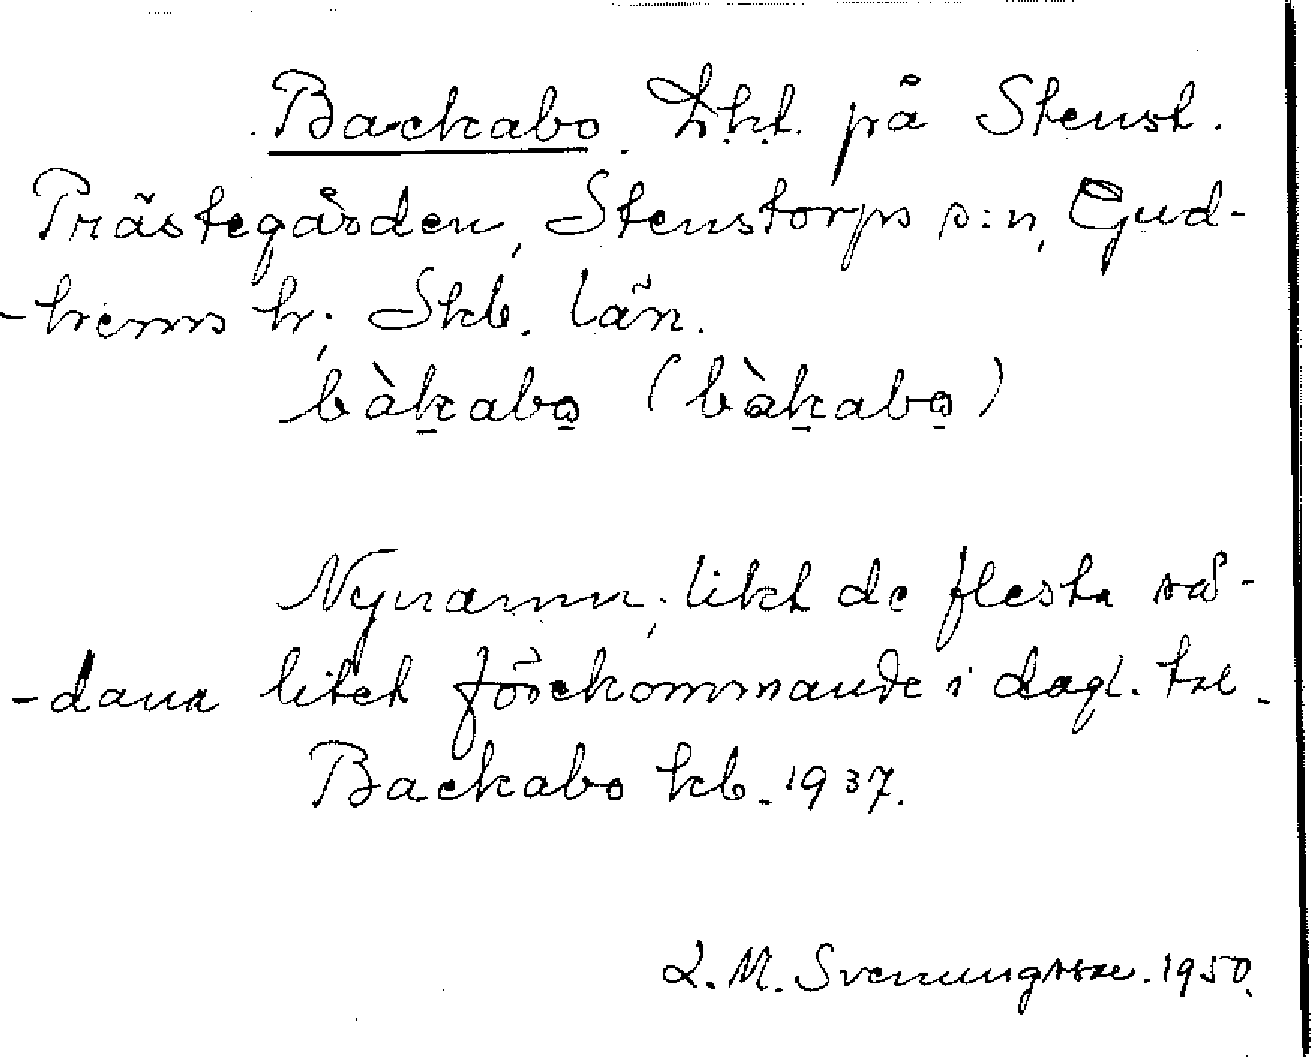 Backabo. Lht. på Stenst.
Prästegården, Stenstorps s:n, Gud-
-hems h., Skb. län.
bàk̠abo̠ (bàk̠abo̠)
Nynamn, likt de flesta så-
-dana litet förekommande i dagl. tal.
Backabo kb. 1937.
L. M. Svenungsson. 1950.